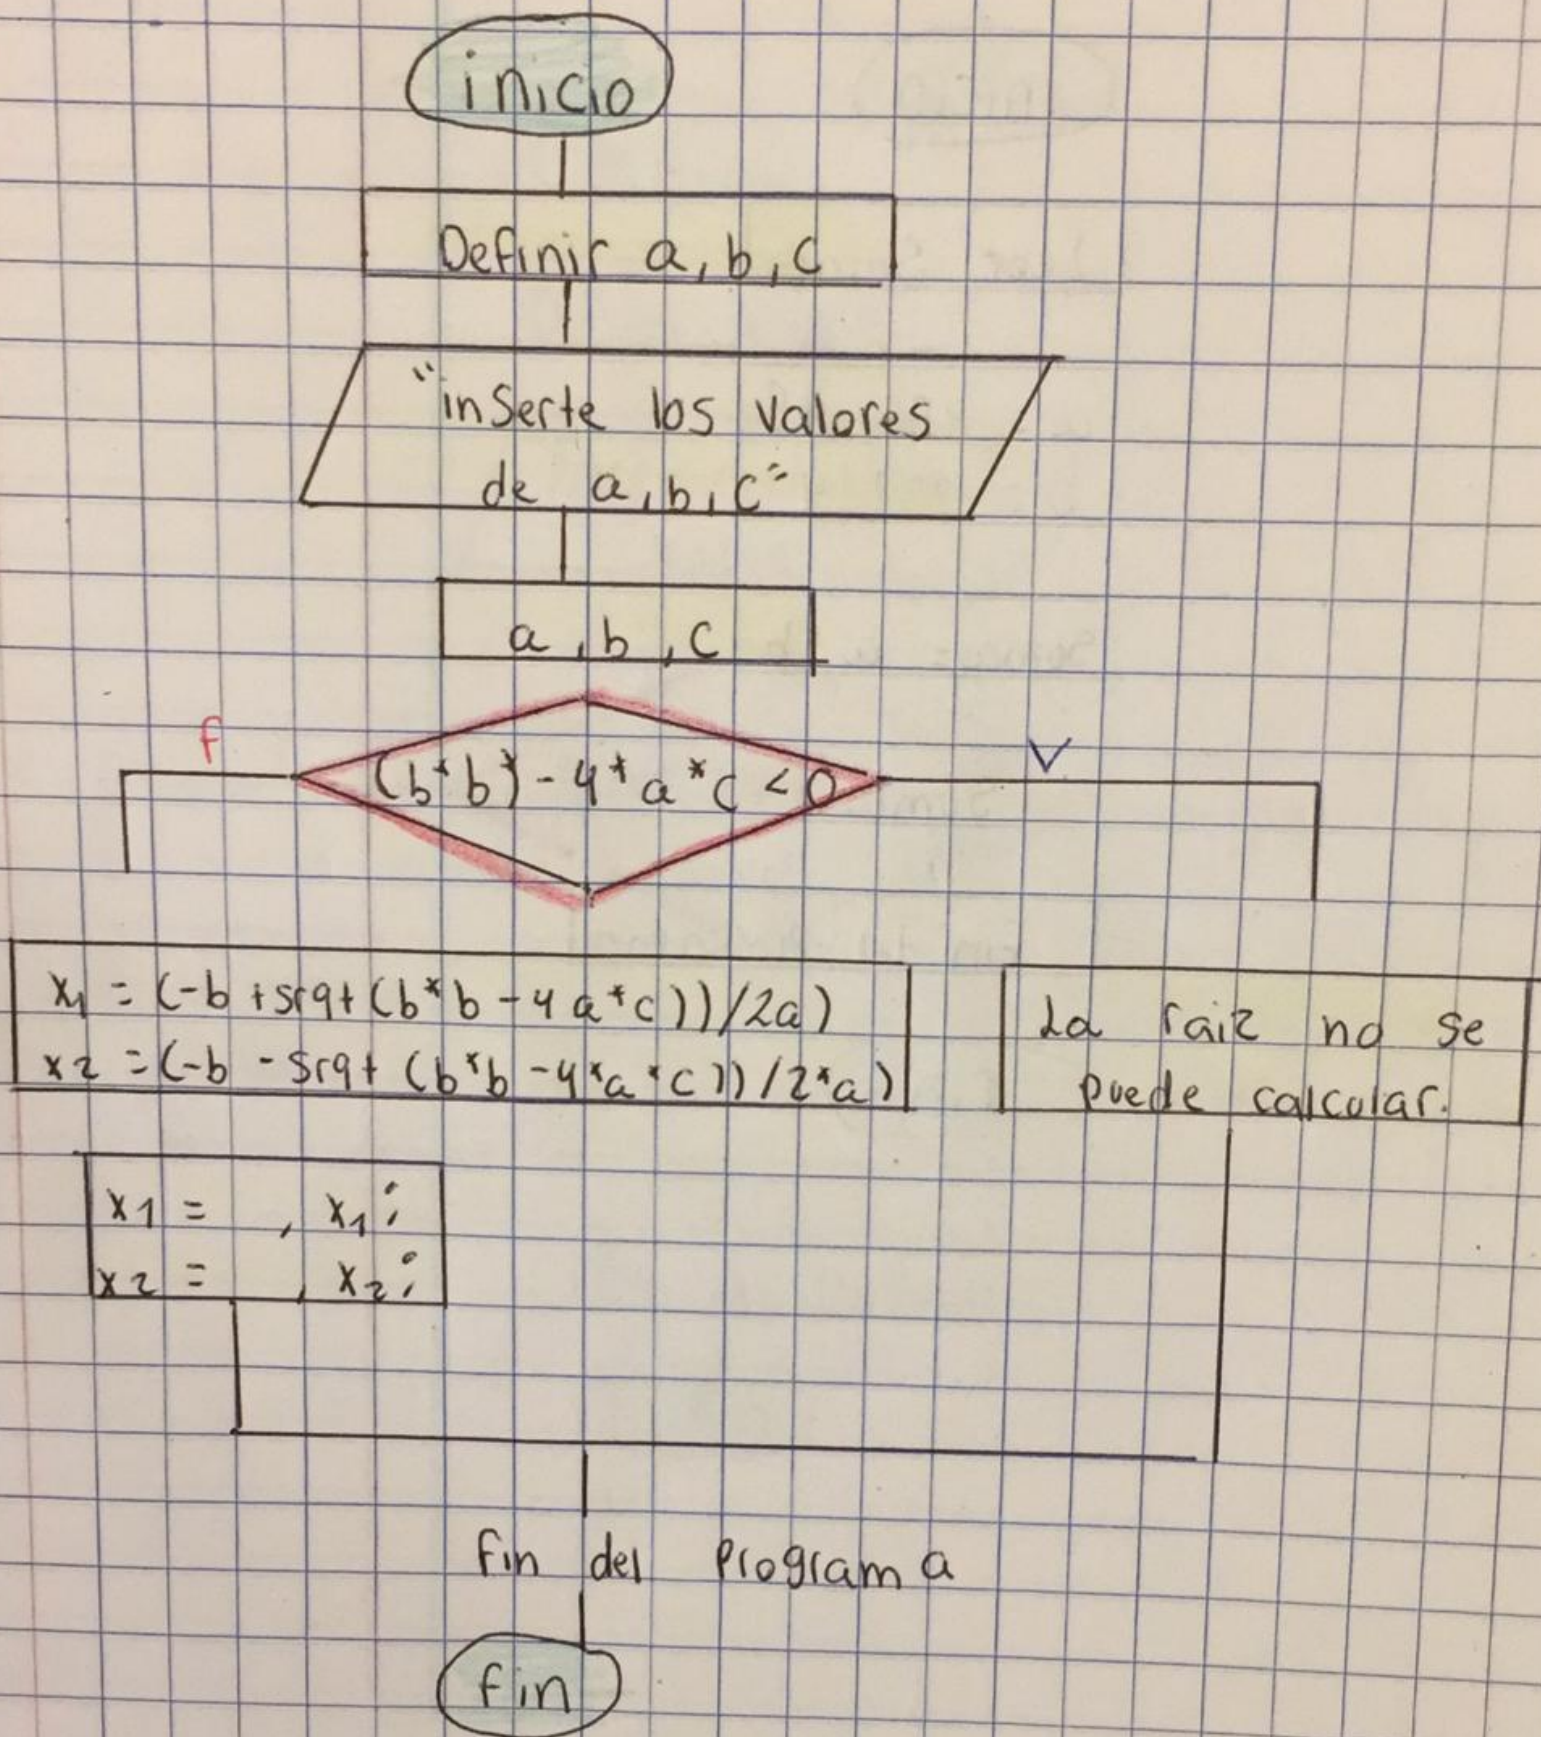 inicio
Definir a, b, c
"inserte los valores
de a, b, c"
a, b, c
f
(b*b)-4*a*c <0
V
x1 = (-b +srqt (b*b -4a*c))/2a)
x2 =(-b -srqt (b*b -4*a*c))/2*a)
La raiz no se
puede calcular.
x1 = , x1;
x2 = , x2;
fin del programa
fin